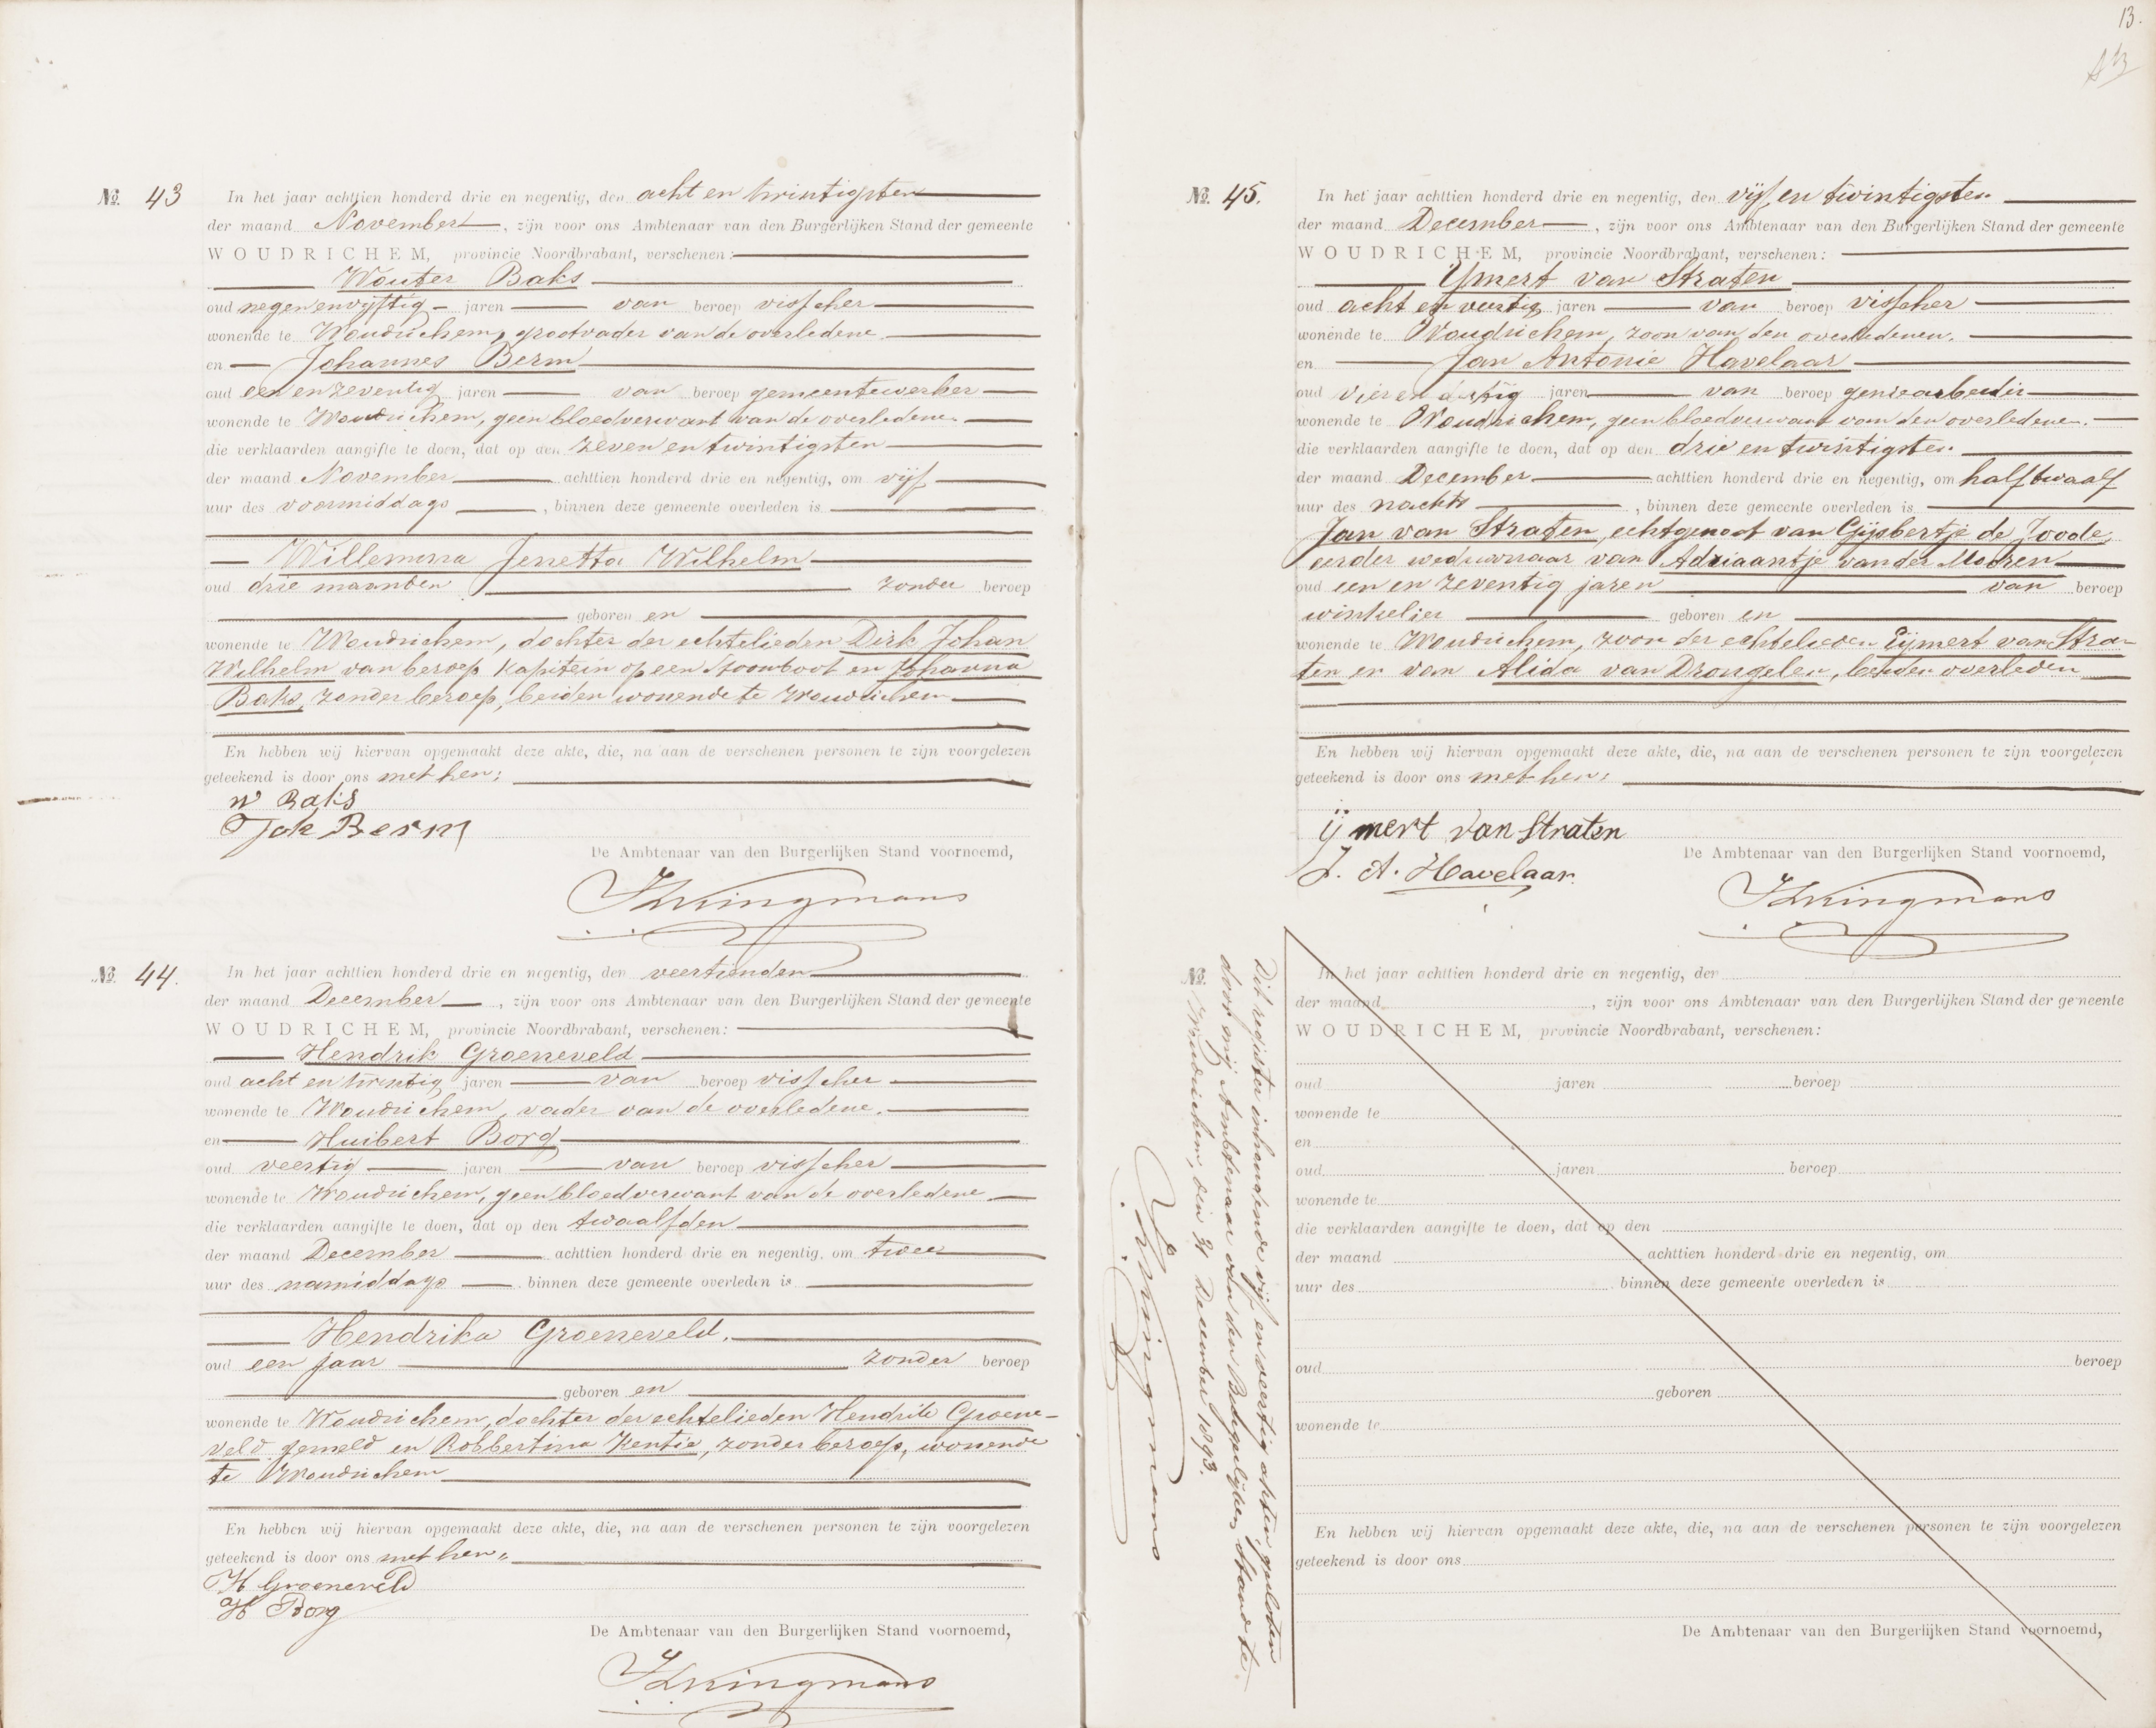 No. 43 In het jaar achttien honderd drie en negentig, den acht en twintigsten
der maand November, zijn voor ons Ambtenaar van den Burgerlijken Stand der gemeente
WOUDRICHEM, provincie Noordbrabant, verschenen:
Wouter Baks
oud negen en vijftig jaren van beroep visscher
wonende te Woudrichem, grootvader van de overledene
en Johannes Berm
oud een en zeventig jaren van beroep gemeentewerker
wonende te Woudrichem, geen bloedverwant van de overledene
die verklaarden aangifte te doen, dat op den zeven en twintigsten
der maand November achttien honderd drie en negentig, om vijf
uur des voormiddags, binnen deze gemeente overleden is
Willemina Jenetta Wilhelm
oud drie maanden zonder beroep
geboren en
wonende te Woudrichem, dochter der echtelieden Dirk Johan
Wilhelm van beroep kapitein op een stoomboot en Johanna
Baks, zonder beroep, beiden wonende te Woudrichem
En hebben wij hiervan opgemaakt deze akte, die, na aan de verschenen personen te zijn voorgelezen
geteekend is door ons met hen:
W Baks
Joh Berm
De Ambtenaar van den Burgerlijken Stand voornoemd,
No. 44. In het jaar achttien honderd drie en negentig, den veertienden
der maand December, zijn voor ons Ambtenaar van den Burgerlijken Stand der gemeente
WOUDRICHEM, provincie Noordbrabant, verschenen:
Hendrik Groeneveld
oud acht en twintig jaren van beroep visscher
wonende te Woudrichem, vader van de overledene.
en Huibert Borg
oud veertig jaren van beroep visscher
wonende te Woudrichem, geen bloedverwant van de overledene
die verklaarden aangifte te doen, dat op den twaalfden
der maand December achttien honderd drie en negentig, om twee
uur des namiddags binnen deze gemeente overleden is
Hendrika Groeneveld.
oud een jaar zonder beroep
geboren en
wonende te Woudrichem, dochter der echtelieden Hendrik Groene-
veld gemeld en Robbertina Kentie, zonder beroep, wonende
te Woudrichem
En hebben wij hiervan opgemaakt deze akte, die, na aan de verschenen personen te zijn voorgelezen
geteekend is door ons met hen.
H Groeneveld
H Borg
De Ambtenaar van den Burgerlijken Stand voornoemd,
13.
No. 45. In het jaar achttien honderd drie en negentig, den vijf en twintigsten
der maand December, zijn voor ons Ambtenaar van den Burgerlijken Stand der gemeente
WOUDRICHEM, provincie Noordbrabant, verschenen:
IJmert van Straten
oud acht en veertig jaren van beroep visscher
wonende te Woudrichem, zoon van den overledenen.
en Jan Antonie Havelaar
oud vier en dertig jaren van beroep geniearbeider
wonende te Woudrichem, geen bloedverwant van den overledene.
die verklaarden aangifte te doen, dat op den drie en twintigsten
der maand December achttien honderd drie en negentig, om half twaalf
uur des nachts, binnen deze gemeente overleden is
Jan van Straten, echtgenoot van Gijsbertje de Joode,
eerder weduwnaar van Adriaantje van der Mooren
oud een en zeventig jaren van beroep
winkelier geboren en
wonende te Woudrichem, zoon der echtelieden Eijmert van Stra-
ten en van Alida van Drongelen, beiden overleden
En hebben wij hiervan opgemaakt deze akte, die, na aan de verschenen personen te zijn voorgelezen
geteekend is door ons met hen.
ijmert van Straten
J. A. Havelaar.
De Ambtenaar van den Burgerlijken Stand voornoemd,
No. In het jaar achttien honderd drie en negentig, den
der maand, zijn voor ons Ambtenaar van den Burgerlijken Stand der gemeente
WOUDRICHEM, provincie Noordbrabant, verschenen:
oud jaren beroep
wonende te
en
oud jaren beroep
wonende te
die verklaarden aangifte te doen, dat op den
der maand achttien honderd drie en negentig, om
uur des binnen deze gemeente overleden is
oud beroep
geboren
wonende te
En hebben wij hiervan opgemaakt deze akte, die, na aan de verschenen personen te zijn voorgelezen
geteekend is door ons
De Ambtenaar van den Burgerlijken Stand voornoemd,
Dit register inhoudende vijf en veertig akten, gesloten
door mij Ambtenaar van den Burgerlijken Stand te
Woudrichem, den 31 December 1893.